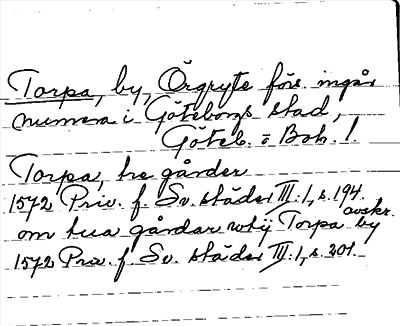 Torpa, by, Örgryte förs. ingår
numera i Göteborgs stad,
Göteb. o Boh. l.
Torpa, tre gårder
1572 Priv. f. Sv. städer III:1, s. 194.
avskr.
om tua gårdar uthij Torpa by
1572 Priv. f. Sv. städer III:1, s. 201.